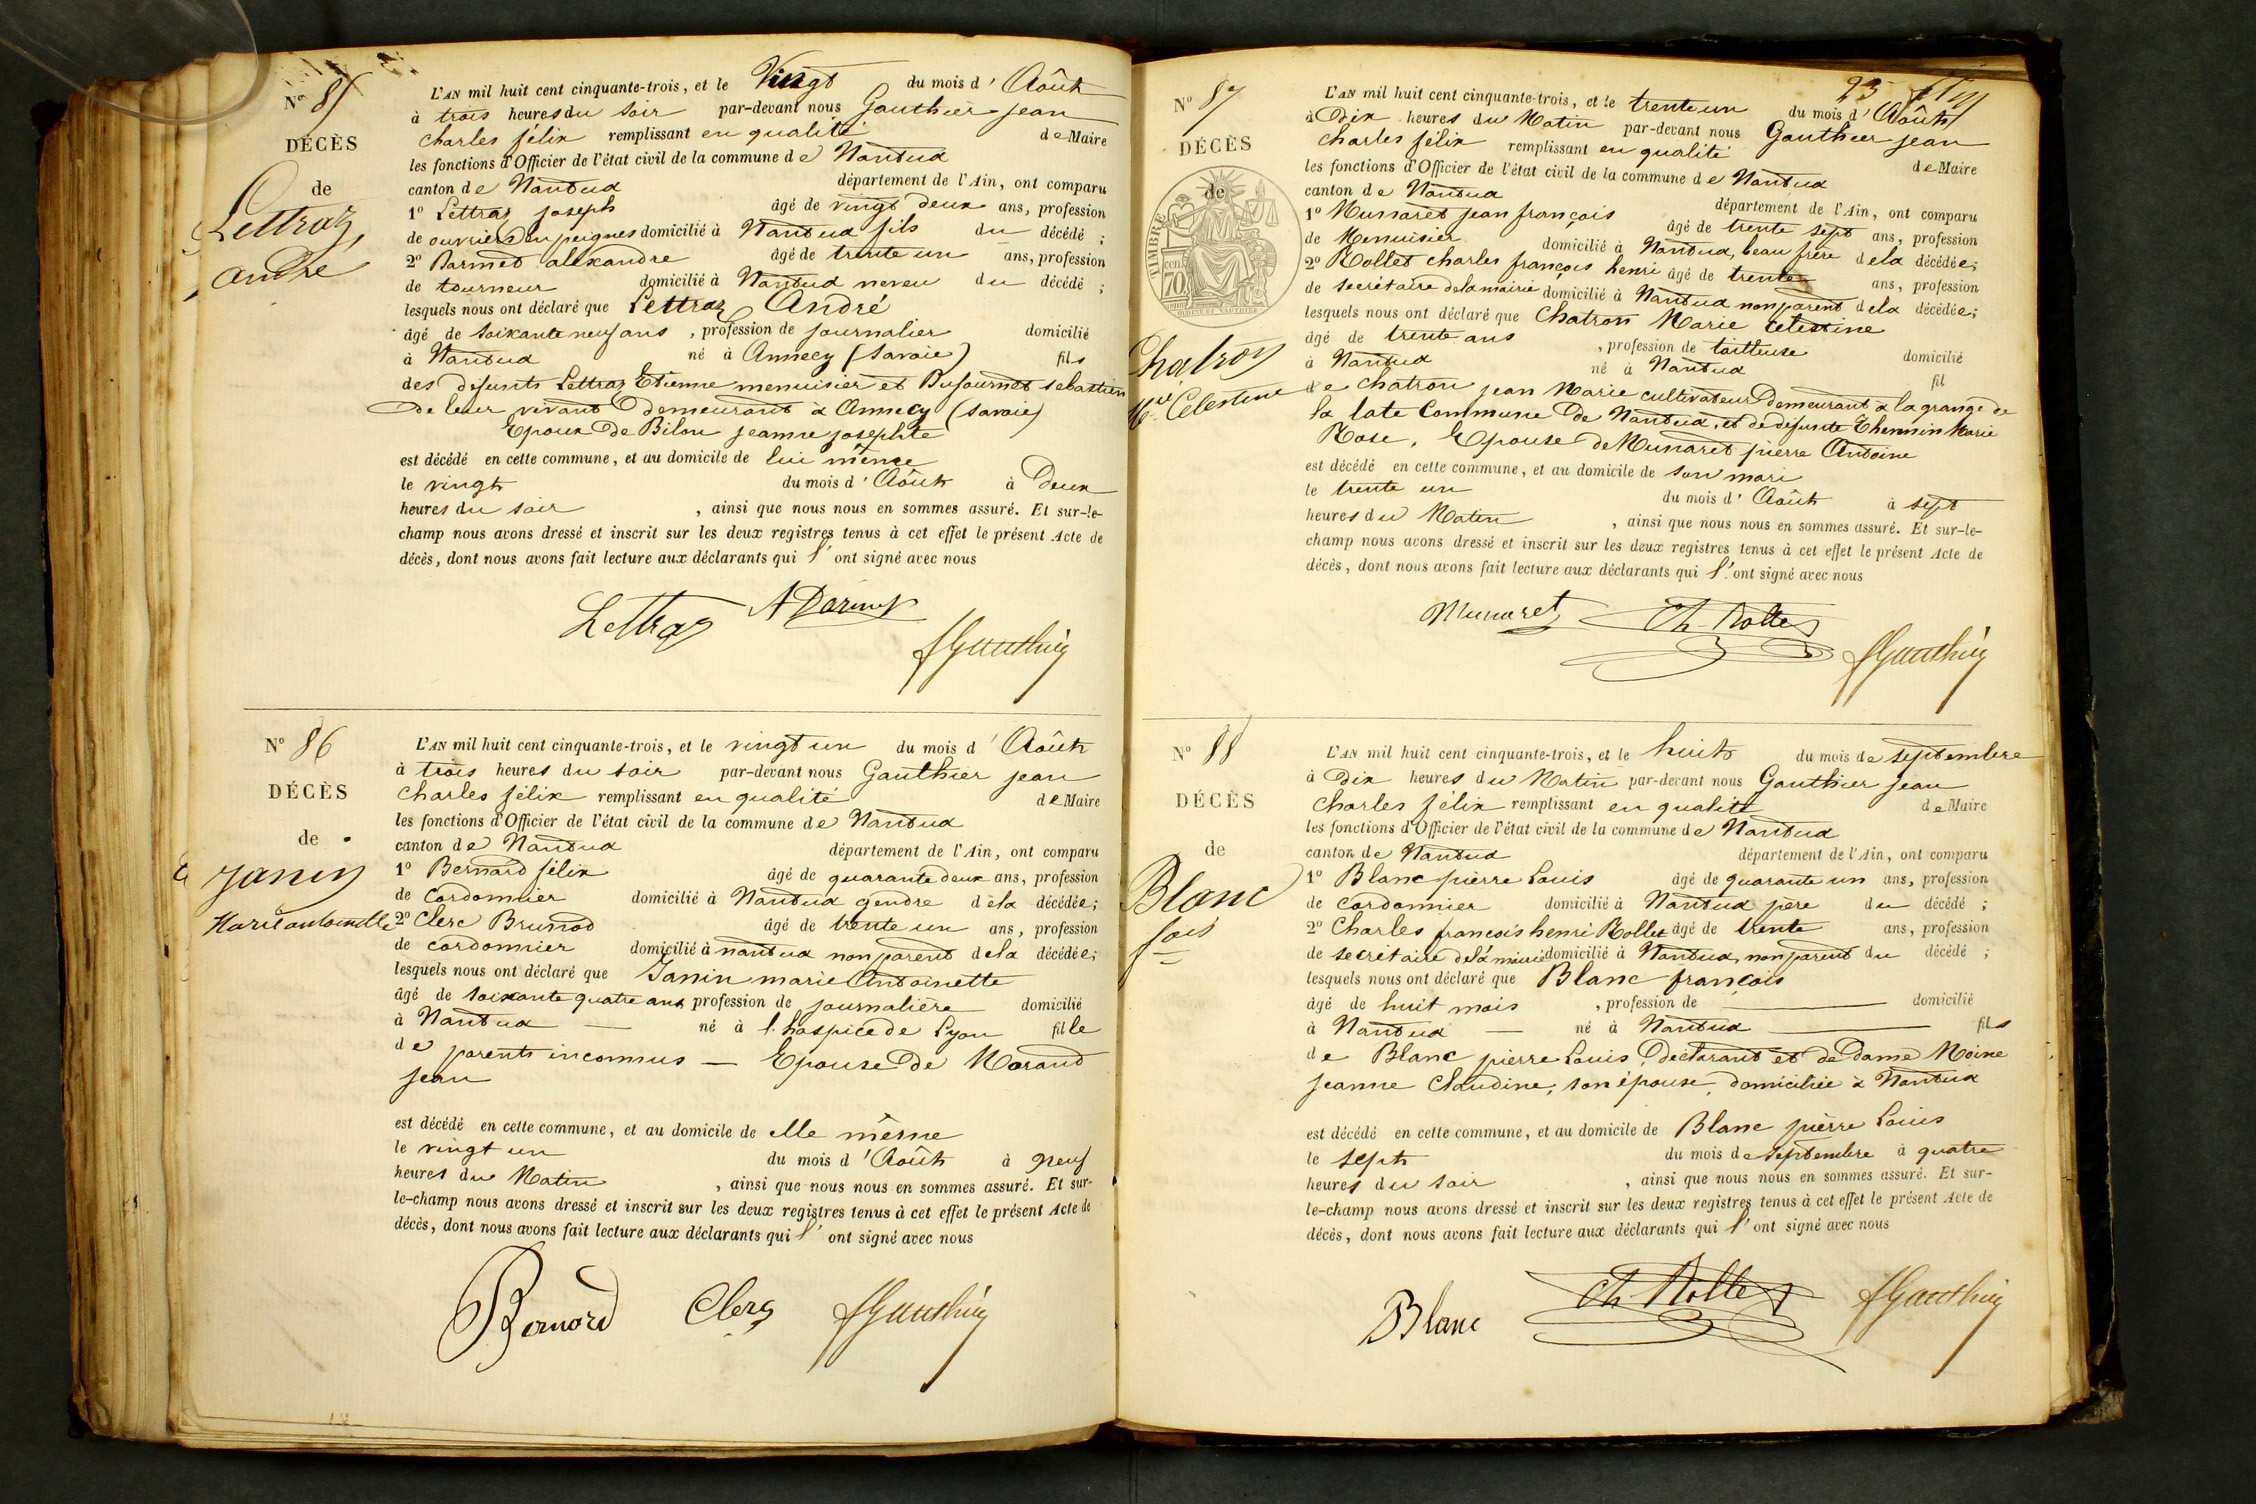 Nº 85
DÉCÈS
de
Lettraz,
André
L'AN mil huit cent cinquante-trois, et le Vingt du mois d'Août
à trois heures du soir par-devant nous Gauthier jean
charles félix remplissant en qualité de Maire
les fonctions d'Officier de l'état civil de la commune de Nantua
canton de Nantua département de l'Ain, ont comparu
1º Lettraz joseph âgé de vingt deux ans, profession
de ouvrier en peignes domicilié à Nantua fils du décédé ;
2º Darmet alexandre âgé de trente un ans, profession
de tourneur domicilié à Nantua neveu du décédé ;
lesquels nous ont déclaré que Lettraz André
âgé de soixante neuf ans , profession de journalier domicilié
à Nantua né à Annecy (Savoie) fils
des défunts Lettraz Etienne menuisier et Dufournet sebastien
de leur vivant demeurant à Annecy (Savoie)
Epoux de Bilon jeanne josephte
est décédé en cette commune, et au domicile de lui même
le vingt du mois d'Août à Deux
heures du soir , ainsi que nous nous en sommes assuré. Et sur-le-
champ nous avons dressé et inscrit sur les deux registres tenus à cet effet le présent Acte de
décès, dont nous avons fait lecture aux déclarants qui l'ont signé avec nous
Lettraz A Darmet
Gauthier
Nº 86
DÉCÈS
de
Janin
Marie antoinette
L'AN mil huit cent cinquante-trois, et le vingt un du mois d'Août
à trois heures du soir par-devant nous Gauthier jean
charles félix remplissant en qualité de Maire
les fonctions d'Officier de l'état civil de la commune de Nantua
canton de Nantua département de l'Ain, ont comparu
1º Bernard félix âgé de quarante deux ans, profession
de cordonnier domicilié à Nantua gendre de la décédée;
2º Clerc Brunod âgé de trente un ans, profession
de cordonnier domicilié à nantua non parent de la décédée;
lesquels nous ont déclaré que Janin marie Antoinette
âgé de soixante quatre ans profession de journalière domicilié
à Nantua — né à l'hospice de Lyon fille
de parents inconnus — Epouse de Morand
jean
est décédé en cette commune, et au domicile de elle même
le vingt un du mois d'Août à neuf
heures du Matin , ainsi que nous nous en sommes assuré. Et sur-
le-champ nous avons dressé et inscrit sur les deux registres tenus à cet effet le présent Acte de
décès, dont nous avons fait lecture aux déclarants qui l'ont signé avec nous
Bernard Clerc Gauthier
23
Nº 87
DÉCÈS
de
TIMBRE
70
Chatron
Mie Célestine
L'AN mil huit cent cinquante-trois, et le trente un du mois d'Août
à Dix heures du Matin par-devant nous Gauthier jean
charles félix remplissant en qualité de Maire
les fonctions d'Officier de l'état civil de la commune de Nantua
canton de Nantua département de l'Ain, ont comparu
1º Munaret jean françois âgé de trente sept ans, profession
de Menuisier domicilié à Nantua, beau frère de la décédée;
2º Rollet charles françois henri âgé de trente ans, profession
de secrétaire de la mairie domicilié à Nantua non parent de la décédée;
lesquels nous ont déclaré que Chatron Marie celestine
âgé de trente ans , profession de tailleuse domicilié
à Nantua né à Nantua fil
de chatron jean Marie cultivateur demeurant à la grange de
la late Commune de Nantua, et de defunte Thevenin Marie
Rose, Epouse de Munaret pierre Antoine
est décédé en cette commune, et au domicile de son mari
le trente un du mois d'Août à sept
heures du Matin , ainsi que nous nous en sommes assuré. Et sur-le-
champ nous avons dressé et inscrit sur les deux registres tenus à cet effet le présent Acte de
décès, dont nous avons fait lecture aux déclarants qui l'ont signé avec nous
Munaret Ch. Rollet
Gauthier
Nº 88
DÉCÈS
de
Blanc
fois
L'AN mil huit cent cinquante-trois, et le huit du mois de septembre
à Dix heures du Matin par-devant nous Gauthier jean
charles félix remplissant en qualité de Maire
les fonctions d'Officier de l'état civil de la commune de Nantua
canton de Nantua département de l'Ain, ont comparu
1º Blanc pierre Louis âgé de quarante un ans, profession
de cordonnier domicilié à Nantua père du décédé ;
2º Charles françois henri Rollet âgé de trente ans, profession
de secrétaire de la mairie domicilié à Nantua, non parent du décédé ;
lesquels nous ont déclaré que Blanc françois
âgé de huit mois , profession de — domicilié
à Nantua — né à Nantua — fils
de Blanc pierre Louis, déclarant et de Dame Moine
jeanne Claudine, son épouse, domiciliée à Nantua
est décédé en cette commune, et au domicile de Blanc pierre Louis
le sept du mois de septembre à quatre
heures du soir , ainsi que nous nous en sommes assuré. Et sur-
le-champ nous avons dressé et inscrit sur les deux registres tenus à cet effet le présent Acte de
décès, dont nous avons fait lecture aux déclarants qui l'ont signé avec nous
Blanc Ch. Rollet Gauthier